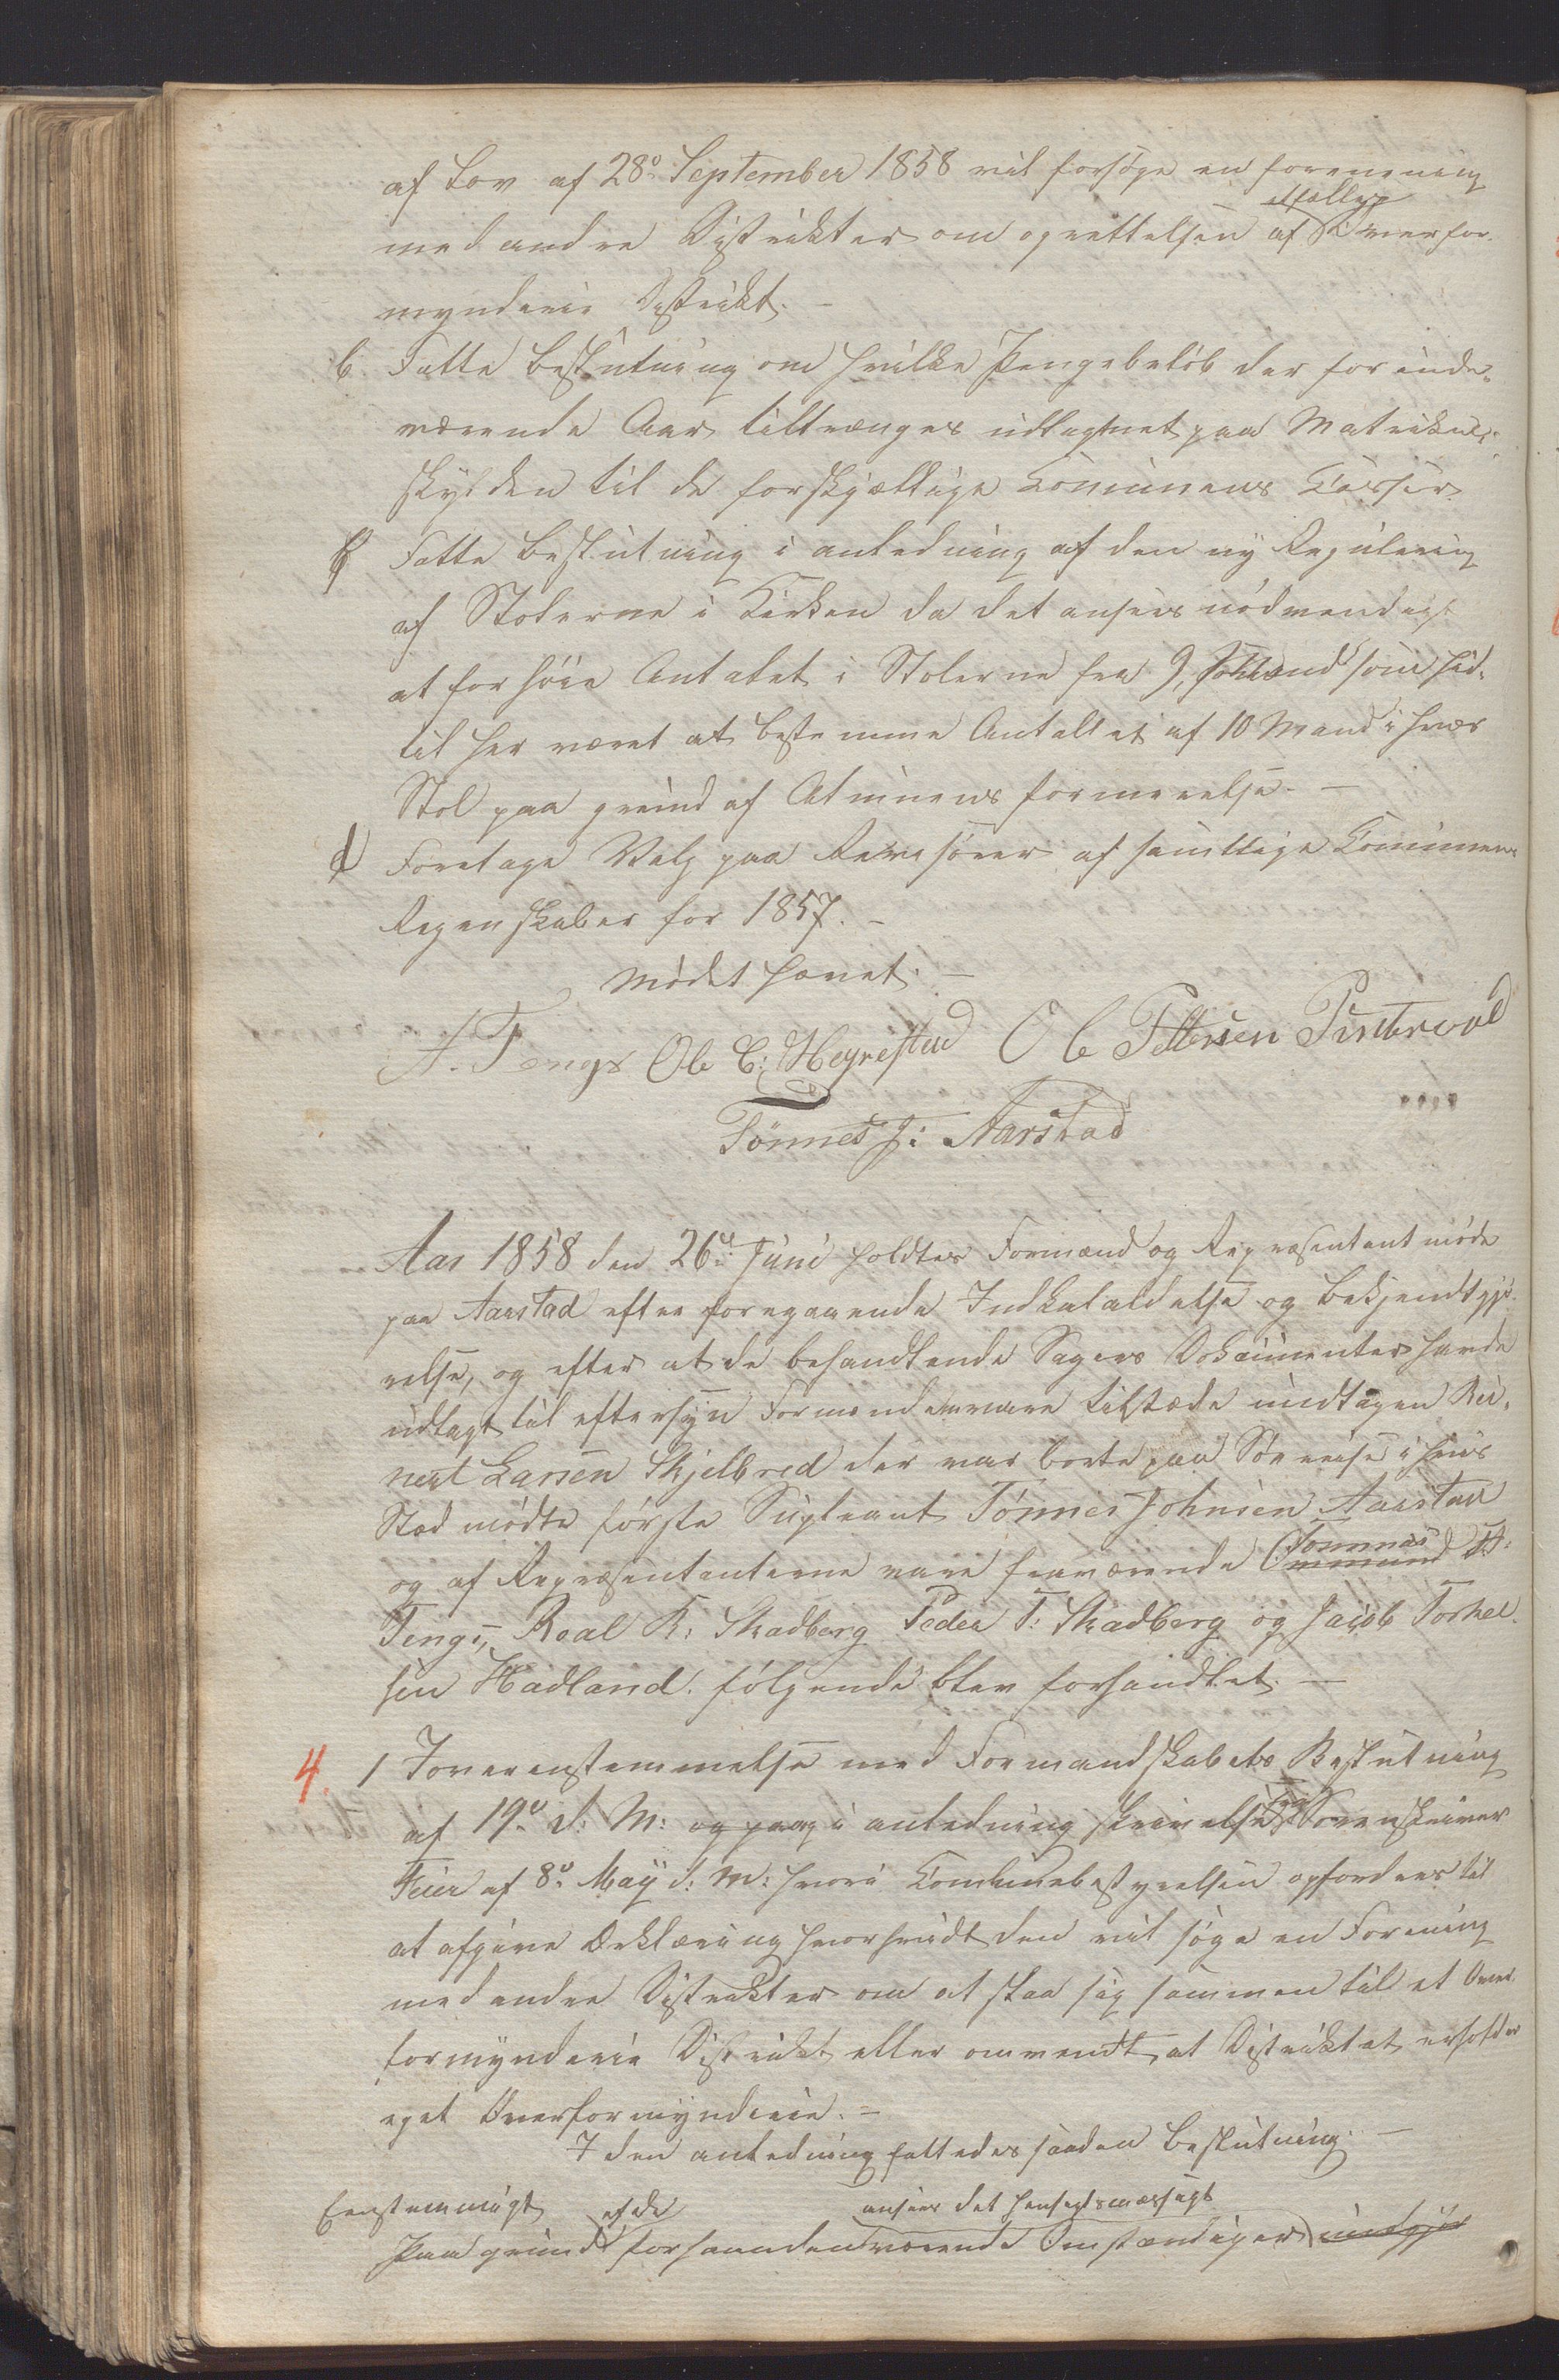 af Lov af 28de September 1858 vil forsøge en forenening
med andre Distrikter om oprettelsen af et fælles Overfor-
mynderie Distrikt. -
b Fatte beslutning om hvilke Pengebeløb der for inde-
værende Aar tiltrænges udlagnet paa Matrikul-
skylden til de forskjællige Comunens Casser.
c Fatte beslutning i anledning af den ny Regulering
af Stolerne i Kirken da det ansees nødvendigt
at forhøie Antalet i Stolerne fra 9, som hid-
til har været at bestemme Antallet af 10 Mand i hver
Stol paa grund af Almuens formerelse. -
d Foretage Valg paa Revisorer af samtlige Communens
Regenskaber for 1857. -
Mødet hævet. -
A. Tengs Ole C: Heyrestad Ole Pettersen Puntervold
Tønnes J: Aarstad
Aar 1858 den 26de Juni holdtes Formænd og Repræsentant møde
paa Aarstad efter foregaaende Indkalaldelse og bekjendtgjø-
relse, og efter at de behandlende Sagers Dokumenter havde
udlagt til eftersyn Formændene vare tilstæde undtagen Rei-
nert Larsen Skjelbred der var borte paa Sø reise i hvis
Sted mødte første Supleant Tønnes Johnsen Aarstad
og af Repræsentanterne vare fraværende Tønnes A:
Tengs, Roal R: Skadberg Peder T: Skadberg og Jacob Torkel-
sen Hadland. følgende blev forhandlet. -
4. 1 Ioverenstemmelse med Formandskabets Beslutning
af 19de d: M: og paa i anledning skrivelse fra Sorenskriver
Feier af 8de May d: M: hvori Communebestyrelsen opfordres til
at afgive Erklæring hvorhvidt den vil søge en Forening
med andre Distrikter om at slaa sig sammen til et Over-
formynderie Distrikt eller omvendt, at Distriktet erholder
eget Overformynderie. -
I den anledning fattedes saaden Beslutning. -
Eenstemmigt
Paa grund af de forhaanden værende Omstændigheder ansees det hensigtsmæssigt